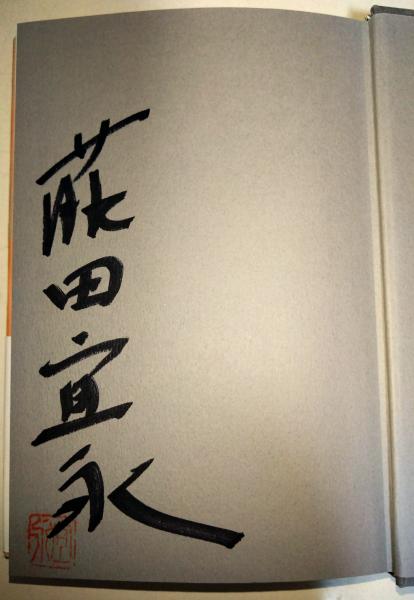 藤田宜永